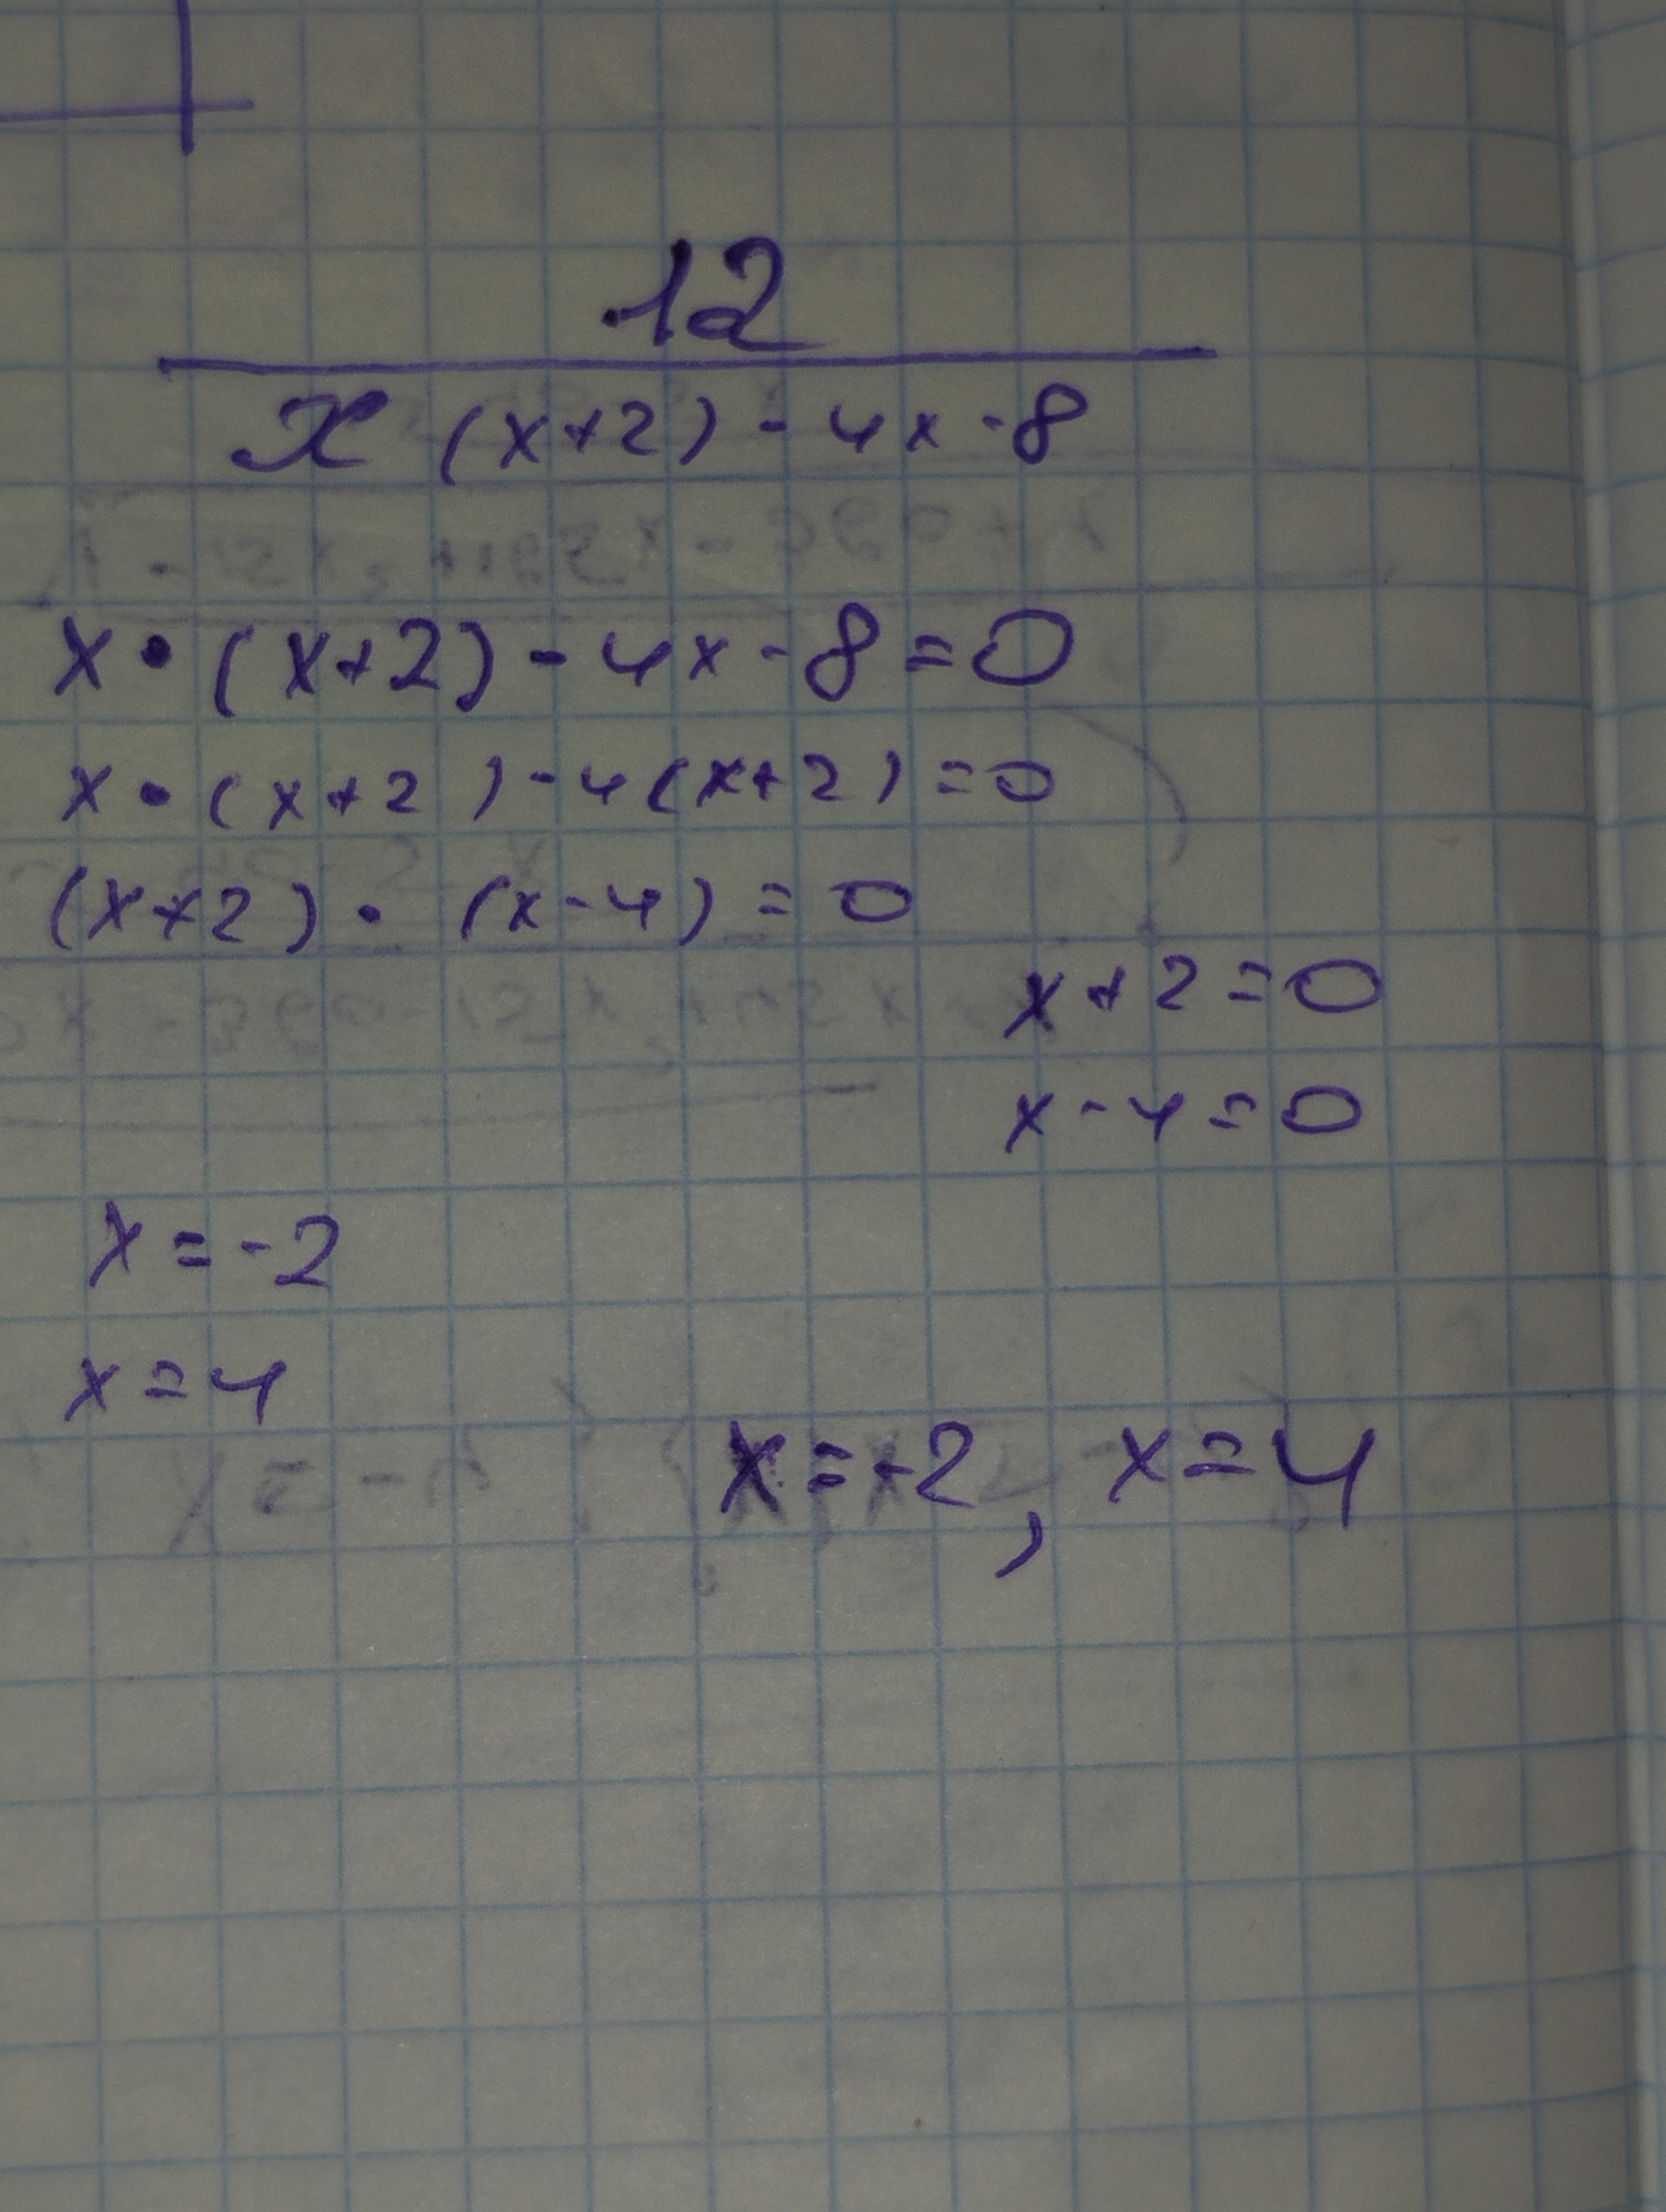 12
x (x+2) - 4x - 8
x • (x+2) - 4x - 8 = 0
x • (x+2) - 4(x+2) = 0
(x+2) • (x-4) = 0
x+2=0
x-4=0
x=-2
x=4
x=-2, x=4